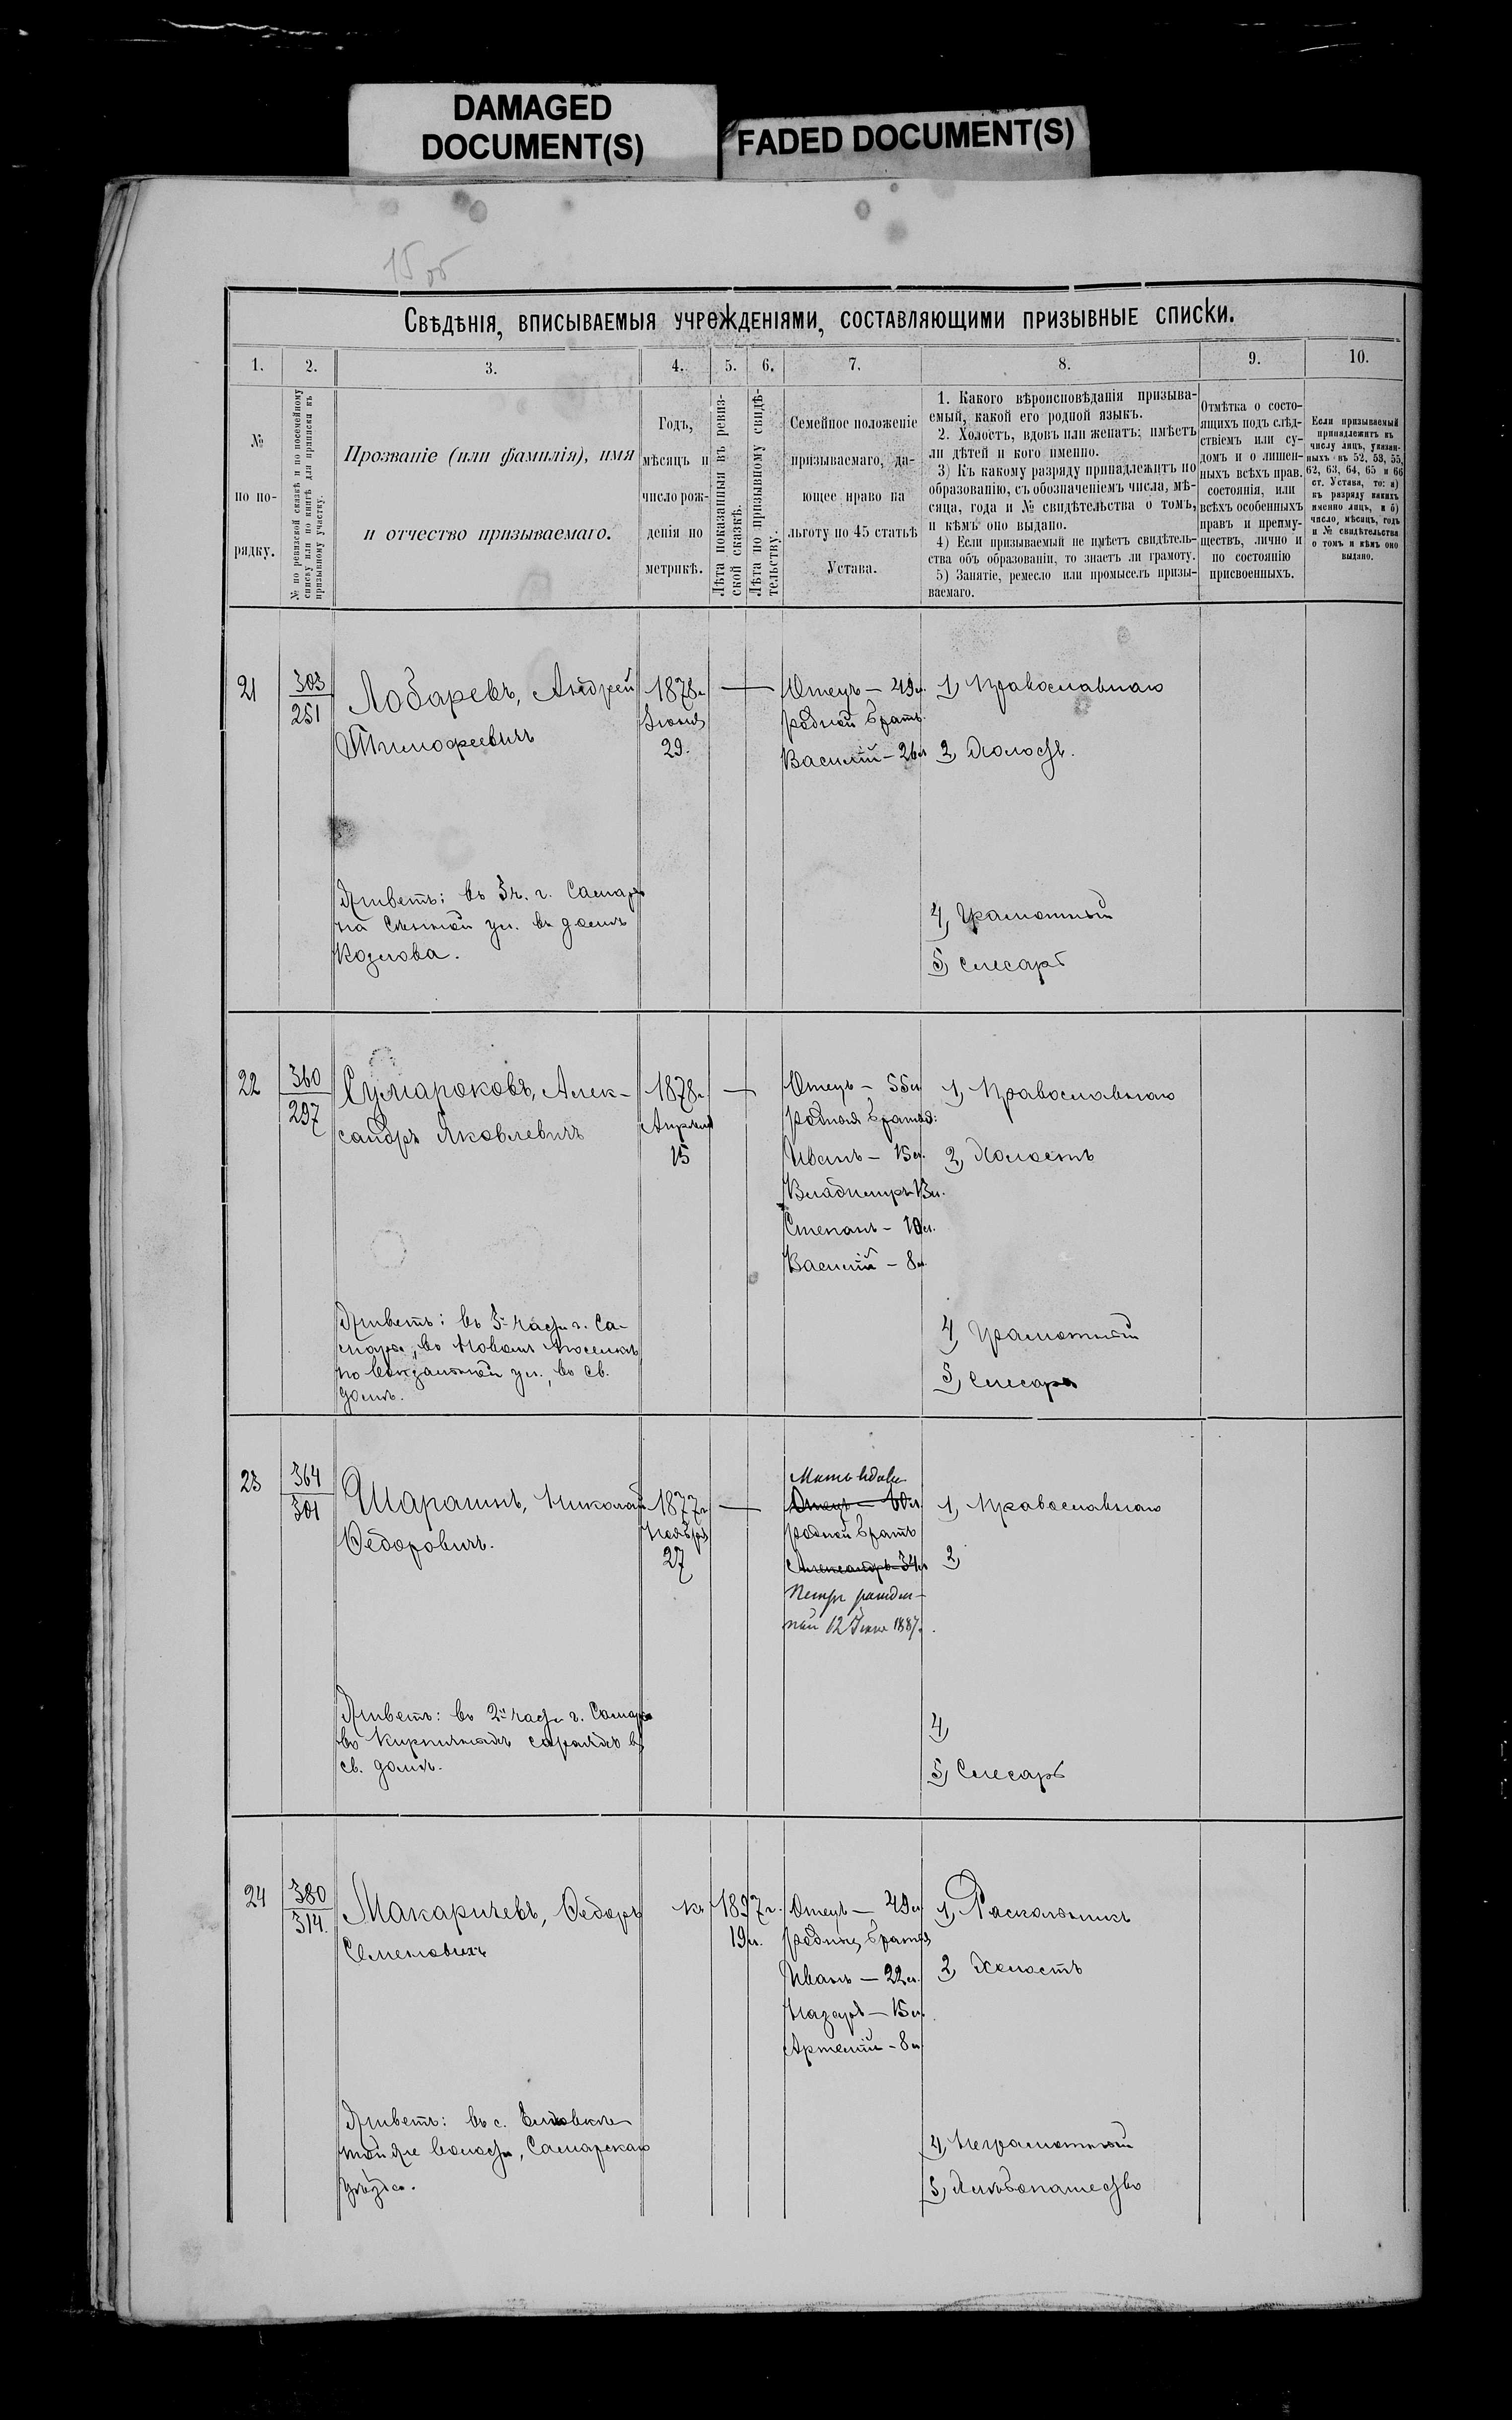 DAMAGED
DOCUMENT(S)
FADED DOCUMENT(S)
15 об
Свѣдѣнія, вписываемыя учрежденіями, составляющими призывные списки.
1. 2. 3. 4. 5. 6. 7. 8. 9. 10.
№
по по-
рядку.
№ по ревизской сказкѣ и по посемейному
списку или по книгѣ для приписки къ
призывному участку.
Прозваніе (или фамилія), имя
и отчество призываемаго.
Годъ,
мѣсяцъ и
число рож-
денія по
метрикѣ.
Лѣта показанныя въ ревиз-
ской сказкѣ.
Лѣта по призывному свидѣ-
тельству.
Семейное положеніе
призываемаго, да-
ющее право на
льготу по 45 статьѣ
Устава.
1. Какого вѣроисповѣданія призыва-
емый, какой его родной языкъ.
2. Холостъ, вдовъ или женатъ; имѣетъ
ли дѣтей и кого именно.
3) Къ какому разряду принадлежитъ по
образованію, съ обозначеніемъ числа, мѣ-
сяца, года и № свидѣтельства о томъ,
и кѣмъ оно выдано.
4) Если призываемый не имѣетъ свидѣтель-
ства объ образованіи, то знаетъ ли грамоту.
5) Занятіе, ремесло или промыселъ призы-
ваемаго.
Отмѣтка о состо-
ящихъ подъ слѣд-
ствіемъ или су-
домъ и о лишен-
ныхъ всѣхъ прав.
состоянія, или
всѣхъ особенныхъ
правъ и преиму-
ществъ, лично и
по состоянію
присвоенныхъ.
Если призываемый
принадлежитъ къ
числу лицъ, указан-
ныхъ въ 52, 53, 55,
62, 63, 64, 65 и 66
ст. Устава, то: а)
къ разряду какихъ
именно лицъ, и б)
число, мѣсяцъ, годъ
и № свидѣтельства
о томъ и кѣмъ оно
выдано.
21
303
251
Лобаревъ, Андрей
Тимофеевичъ
1878г.
Іюня
29.
Отецъ — 49л.
родной братъ
Василій — 26л
1, Православнаго
2, Холостъ.
Живетъ: въ 3ч. г. Самары
на Сѣнной ул. въ домѣ
Козлова.
4, Грамотный
5, Слесарь
22
360
297
Сумароковъ, Алек-
сандръ Яковлевичъ
1878г.
Апрѣля
15
Отецъ — 55л
родныя братья:
Иванъ — 15л.
Владиміръ 13л.
Степанъ — 10л.
Василій — 8л.
1, Православнаго
2, Холостъ
Живетъ: въ 3й части г. Са-
мары, въ Новомъ Поселкѣ,
по Вокзальной ул., въ св.
домѣ.
4, Грамотный
5, Слесарь
23
364
301
Шарашинъ, Николай
Федоровичъ.
1877г
Ноября
27
Мать вдова
Отецъ — 60л
родной братъ
Александръ — 34л
Петръ рожден-
ный 12 Іюня 1887.
1, Православнаго
2,
Живетъ: въ 2й части г. Самары
въ Кирпичныхъ сараяхъ въ
св. домѣ.
4,
5, Слесарь
24
380
314.
Макаричевъ, Федоръ
Семеновичъ
къ 1897г.
19л.
Отецъ — 49л
родные братья
Иванъ — 22л.
Назаръ — 15л.
Артемій - 8л.
1, Раскольникъ
2, Холостъ
Живетъ: въ с. Еловкѣ
той же волости, Самарскаго
уѣзда.
4, Неграмотный
5, Хлѣбопашество